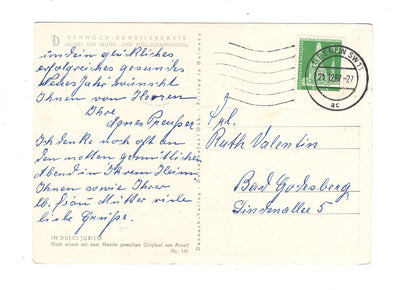 DENNOCH-KÜNSTLERKARTE
KUNST DER MUND- UND FUSS-SCHAFFENDEN
und ein glückliches
erfolgreiches gesundes
Neues Jahr wünscht
Ihnen von Herzen
Ihre
Agnes Preußer
Ich denke noch oft an
den netten gemütlichen
Abend in Ihrem Heim
Ihnen sowie Ihrer
lb. Frau Mutter viele
liebe Grüße.
IN DULCI JUBILO
Nach einem mit dem Munde gemalten Original von Arnulf
Nr. 141
Dennoch-Verlag
Printed in Germany
BERLIN SW
21.12.67-22
ac
Frl.
Ruth Valentin
Bad Godesberg
Lindenallee 5